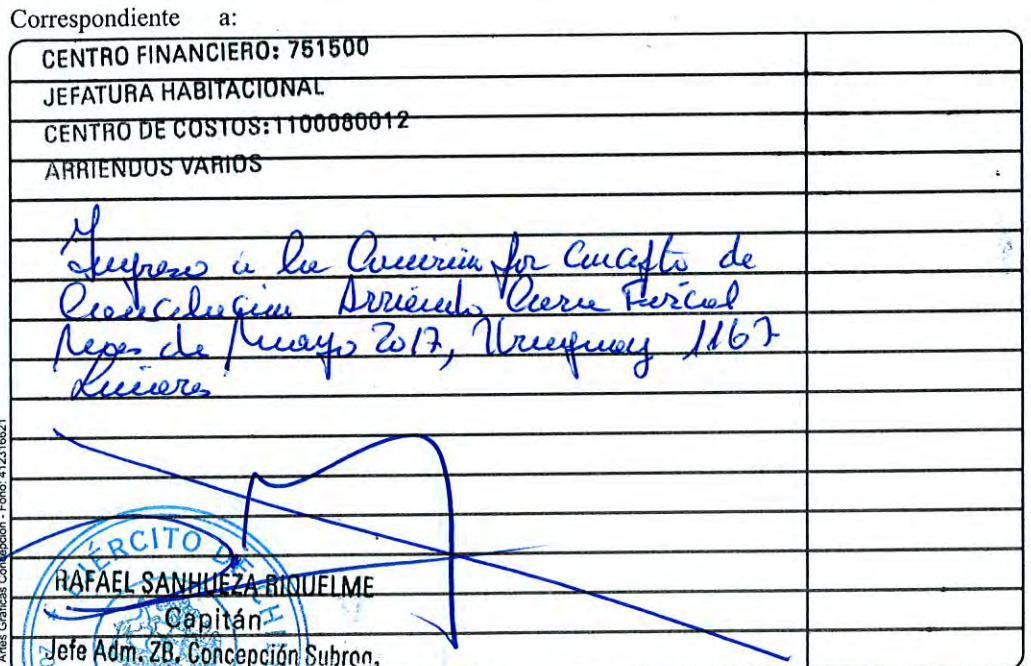 Correspondiente a:
CENTRO FINANCIERO: 751500
JEFATURA HABITACIONAL
CENTRO DE COSTOS: 1100080012
ARRIENDOS VARIOS
Ingreso a la Comisión por Concepto de
Cancelación Arriendo Casa Fiscal
Mes de Mayo 2017, Uruguay 1167
Linares
EJÉRCITO DE CHI
RAFAEL SANHUEZA RIQUELME
Capitán
Jefe Adm. ZB. Concepción Subrog.
Artes Gráficas Concepción - Fono: 412316621